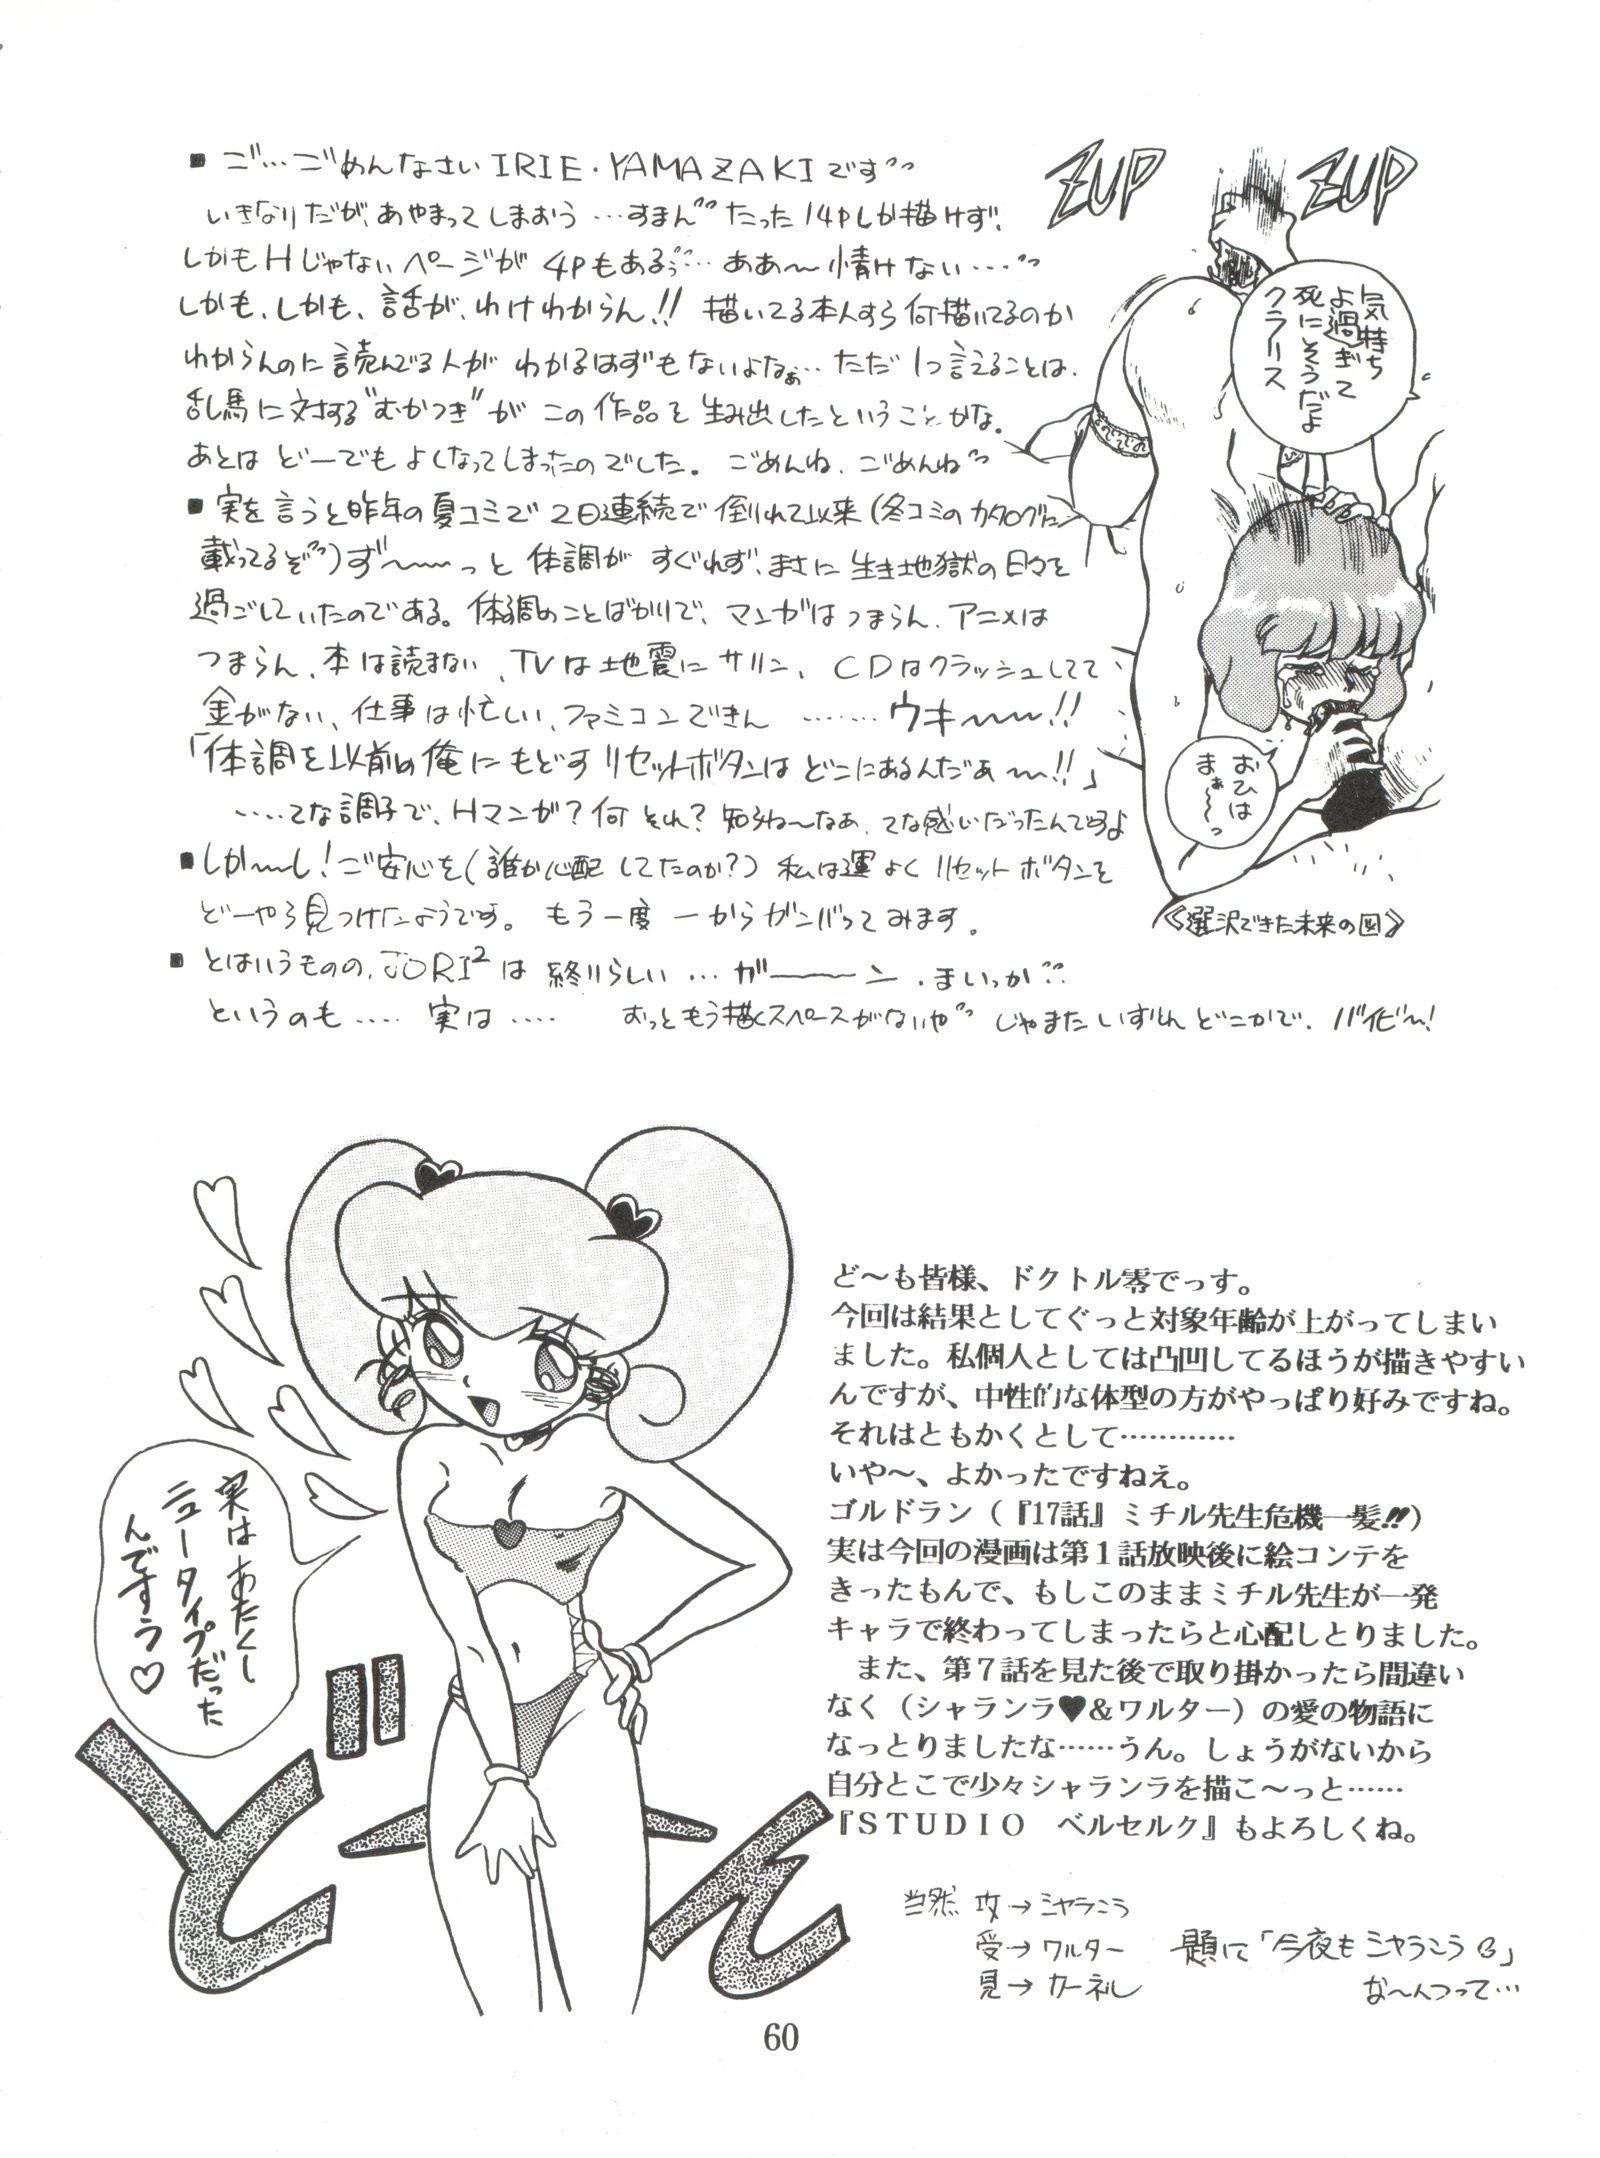 ■ ゴ…ごめんなさい IRIE・YAMAZAKIです
いきなりだが、あやまってしまおう…すまん たった14Pしか描けず、
しかもHじゃないページが 4Pもあるぅ… ああ～情けない…
しかも、しかも、話が、わけわからん!! 描いてる本人すら何描いてるのか
わからんのに読んでる人が わかるはずもないよなぁ… ただ1つ言えることは、
乱馬に対する"むかつき"が この作品を生み出したということかな。
あとは どーでもよくなってしまったのでした。ごめんね、ごめんね
■ 実を言うと昨年の夏コミで2日連続で倒れて以来(冬コミのカタログに
載ってるぞ)ず～～っと 体調がすぐれず、まさに生き地獄の日々を
過ごしていたのである。体調のことばかりで、マンガはつまらん、アニメは
つまらん、本は読まない、TVは地震にサリン、CDはクラッシュしてて
金がない、仕事は忙しい、ファミコンできん ……ウキ～～!!
「体調を以前の俺にもどすリセットボタンはどこにあるんだぁ～!!」
……てな調子で、Hマンガ?何それ?知らね～なぁ、てな感じだったんですよ
■ しか～し!ご安心を(誰か心配してたのか?)私は運よくリセットボタンを
どーやら見つけたようです。もう一度一からガンバってみます。
■ とはいうものの、JORI²は 終りらしい…ガーーーン、まいっか
というのも…… 実は…… おっともう描くスペースがないや じゃまたいずれどこかで、バイビ～!
ZUP
ZUP
気持ち
よ過ぎて
死にそうだよ
クラリース
おひは
まぁ～～っ
《選択できた未来の図》
実はあたくし
ニュータイプだった
んですぅ♡
ど～ん
ど～も皆様、ドクトル零でっす。
今回は結果としてぐっと対象年齢が上がってしまい
ました。私個人としては凸凹してるほうが描きやすい
んですが、中性的な体型の方がやっぱり好みですね。
それはともかくとして…………
いや～、よかったですねえ。
ゴルドラン(『17話』ミチル先生危機一髪!!)
実は今回の漫画は第1話放映後に絵コンテを
きったもんで、もしこのままミチル先生が一発
キャラで終わってしまったらと心配しとりました。
また、第7話を見た後で取り掛かったら間違い
なく(シャランラ♥&ワルター)の愛の物語に
なっとりましたな……うん。しょうがないから
自分とこで少々シャランラを描こ～っと……
『STUDIO ベルセルク』もよろしくね。
当然 攻→シャランラ
受→ワルター
見→カーネル
題に「今夜もシャランラ
な～んつって…
60